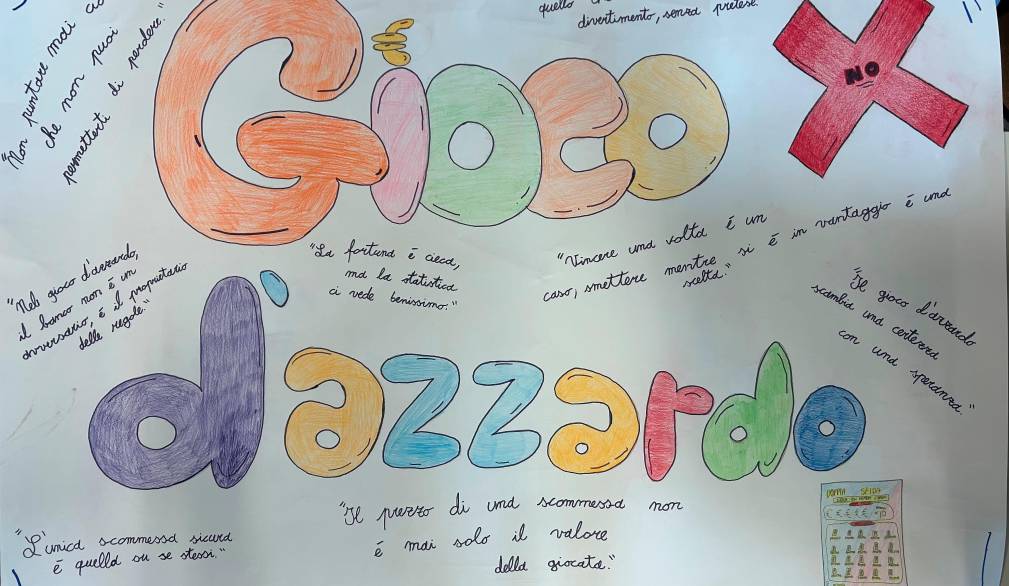 "Non puntare mai
che non puoi
permetterti di perdere."
quello
divertimento, senza pretese.
GIOCO
NO
"Nel gioco d'azzardo,
il banco non é un
avversario, é il proprietario
delle regole."
"La fortuna é cieca,
ma la statistica
ci vede benissimo."
"Vincere una volta é un
caso, smettere mentre si é in vantaggio é una
scelta."
"Il gioco d'azzardo
scambia una certezza
con una speranza."
d'azzardo
"L'unica scommessa sicura
é quella su se stessi."
"Il prezzo di una scommessa non
é mai solo il valore
della giocata."